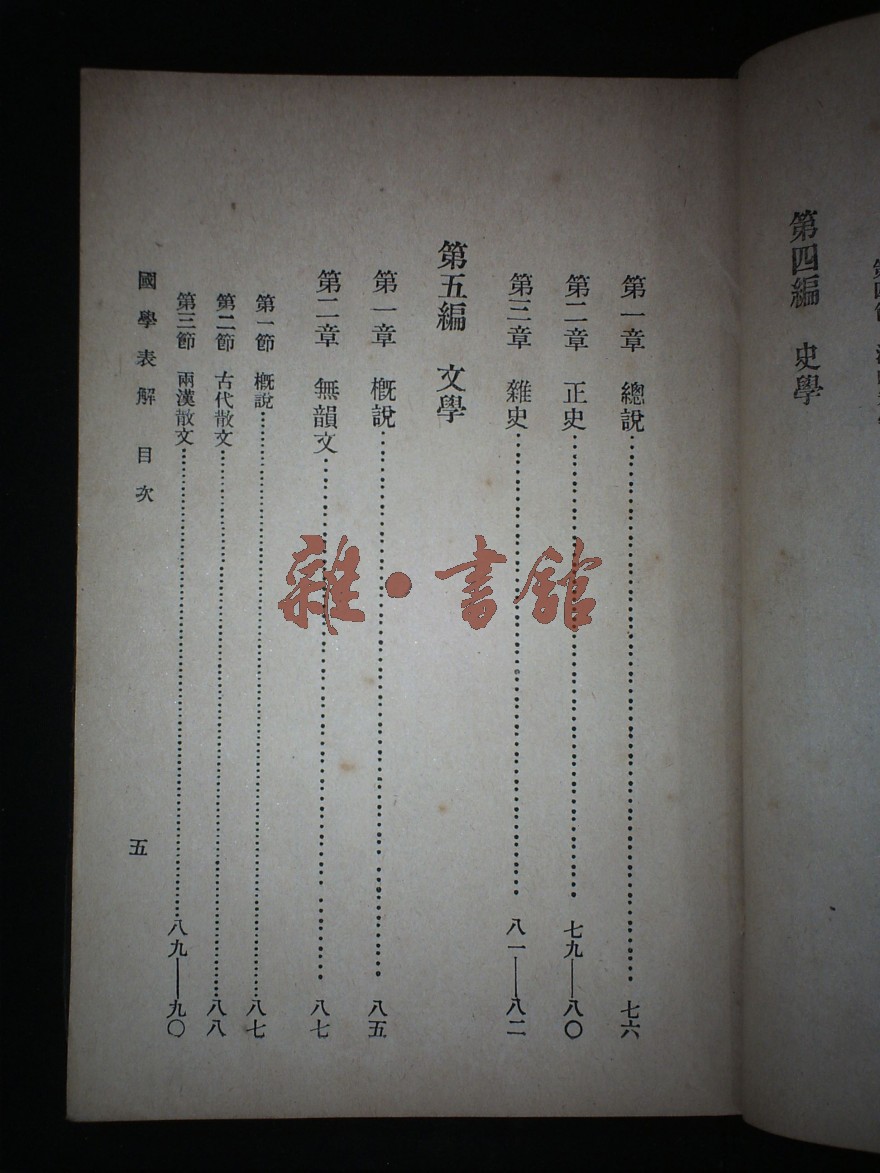 第四編　史學
第一章　總說…………七六
第二章　正史…………七九——八〇
第三章　雜史…………八一——八二
第五編　文學
第一章　概說…………八五
第二章　無韻文…………八七
第一節　概說…………八七
第二節　古代散文…………八八
第三節　兩漢散文…………八九——九〇
國學表解　目次　五
雜·書館